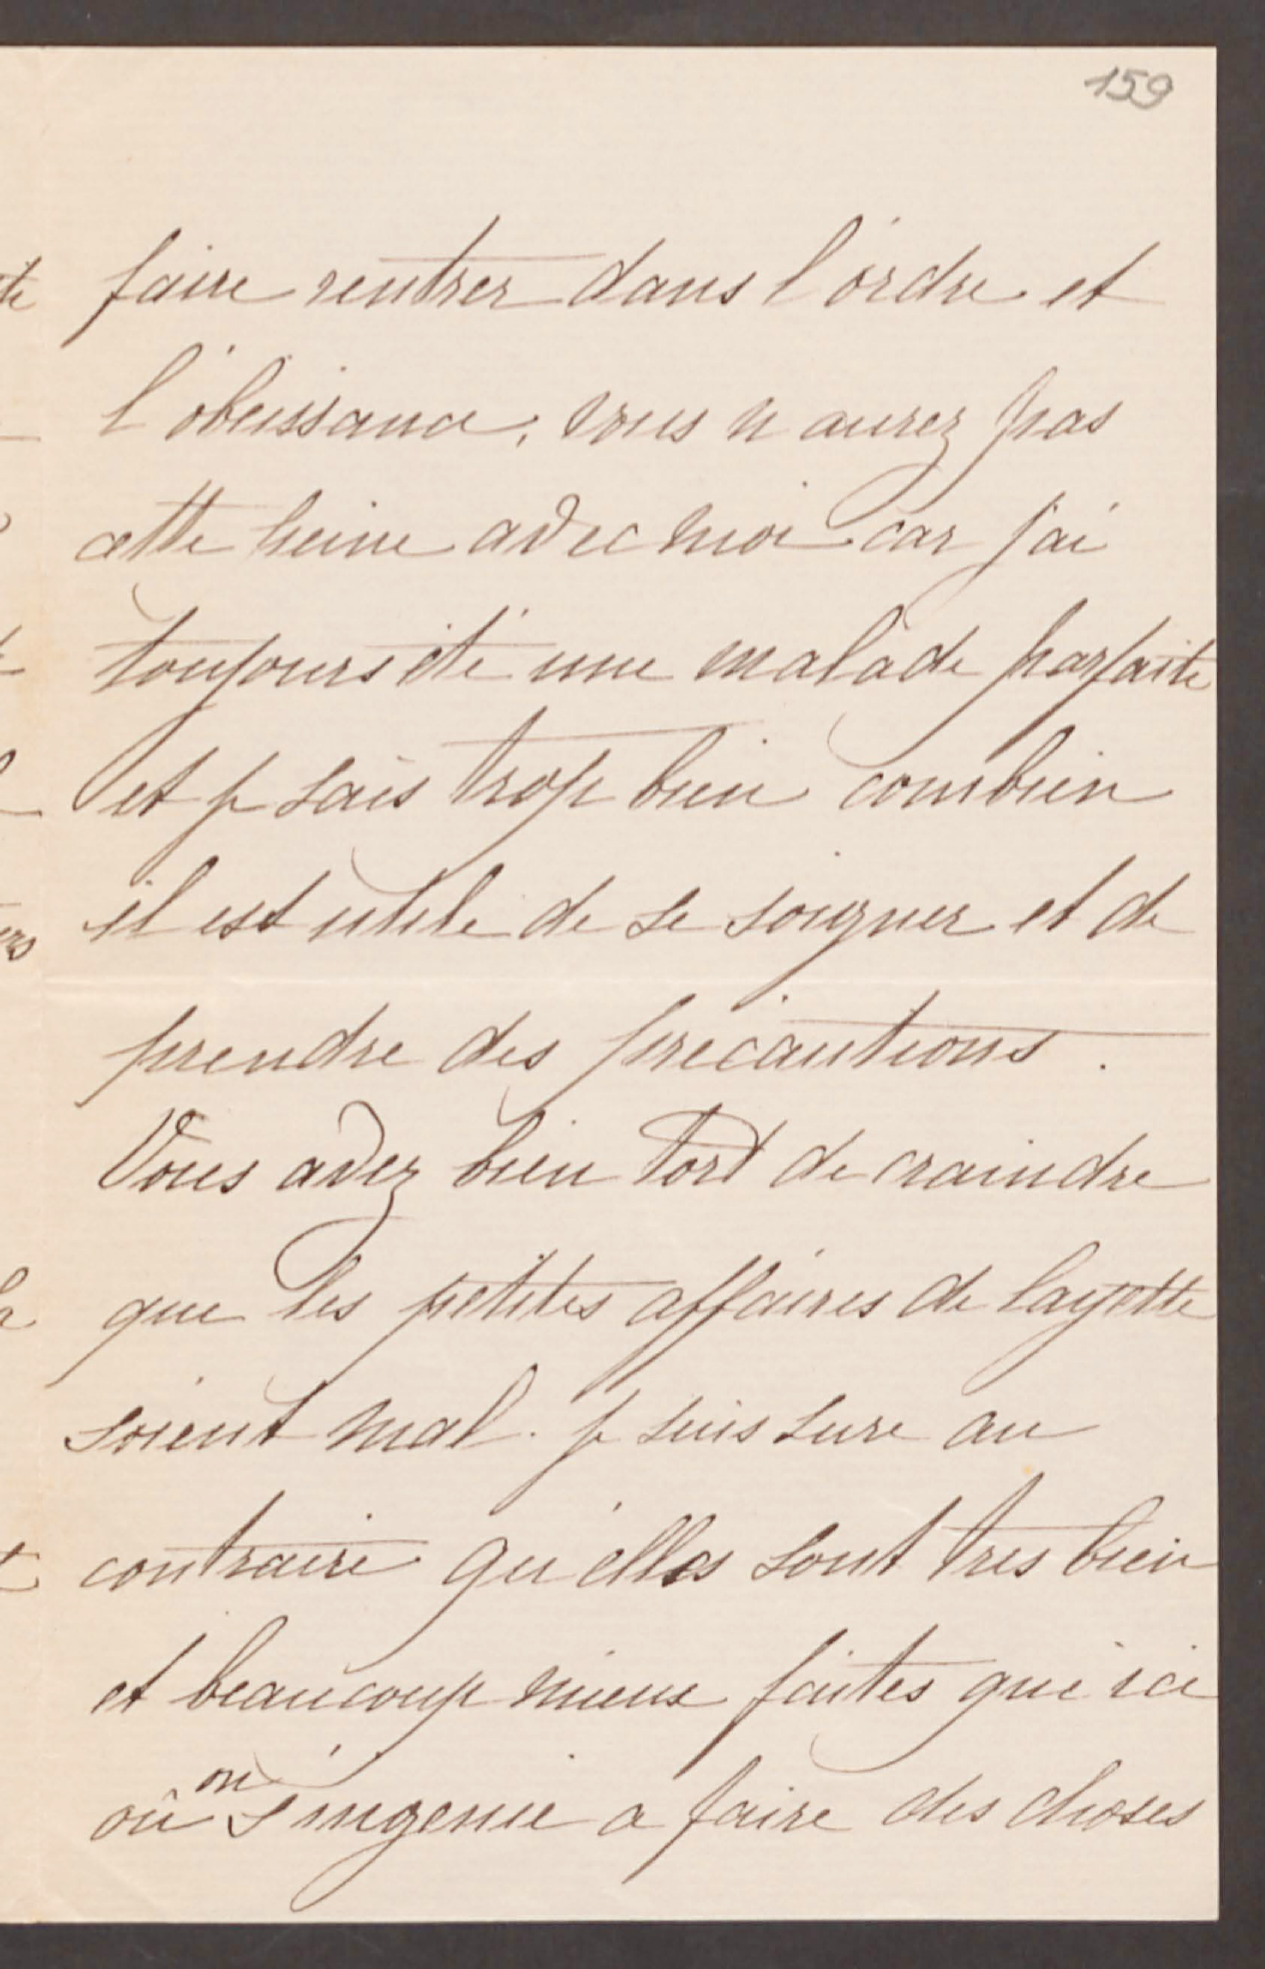 159
faire rentrer dans l'ordre et
l'obeissance; vous n'aurez pas
cette peine avec moi car j'ai
toujours été une malade parfaite
et je sais trop bien combien
il est utile de se soigner et de
prendre des précautions.
Vous avez bien tort de craindre
que les petites affaires de layette
soient mal. je suis sure au
contraire qu'elles sont tres bien
et beaucoup mieux faites que ici
où on s'ingenie a faire des choses